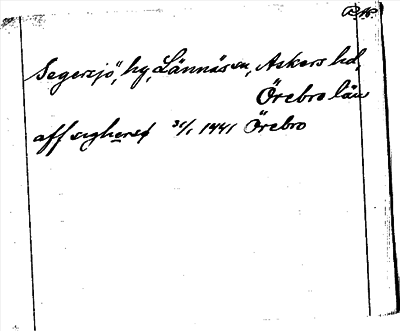 Segersjö, hg, Lännäs sn, Askers hd,
Örebro län
aff segherssø 31/1 1441 Örebro